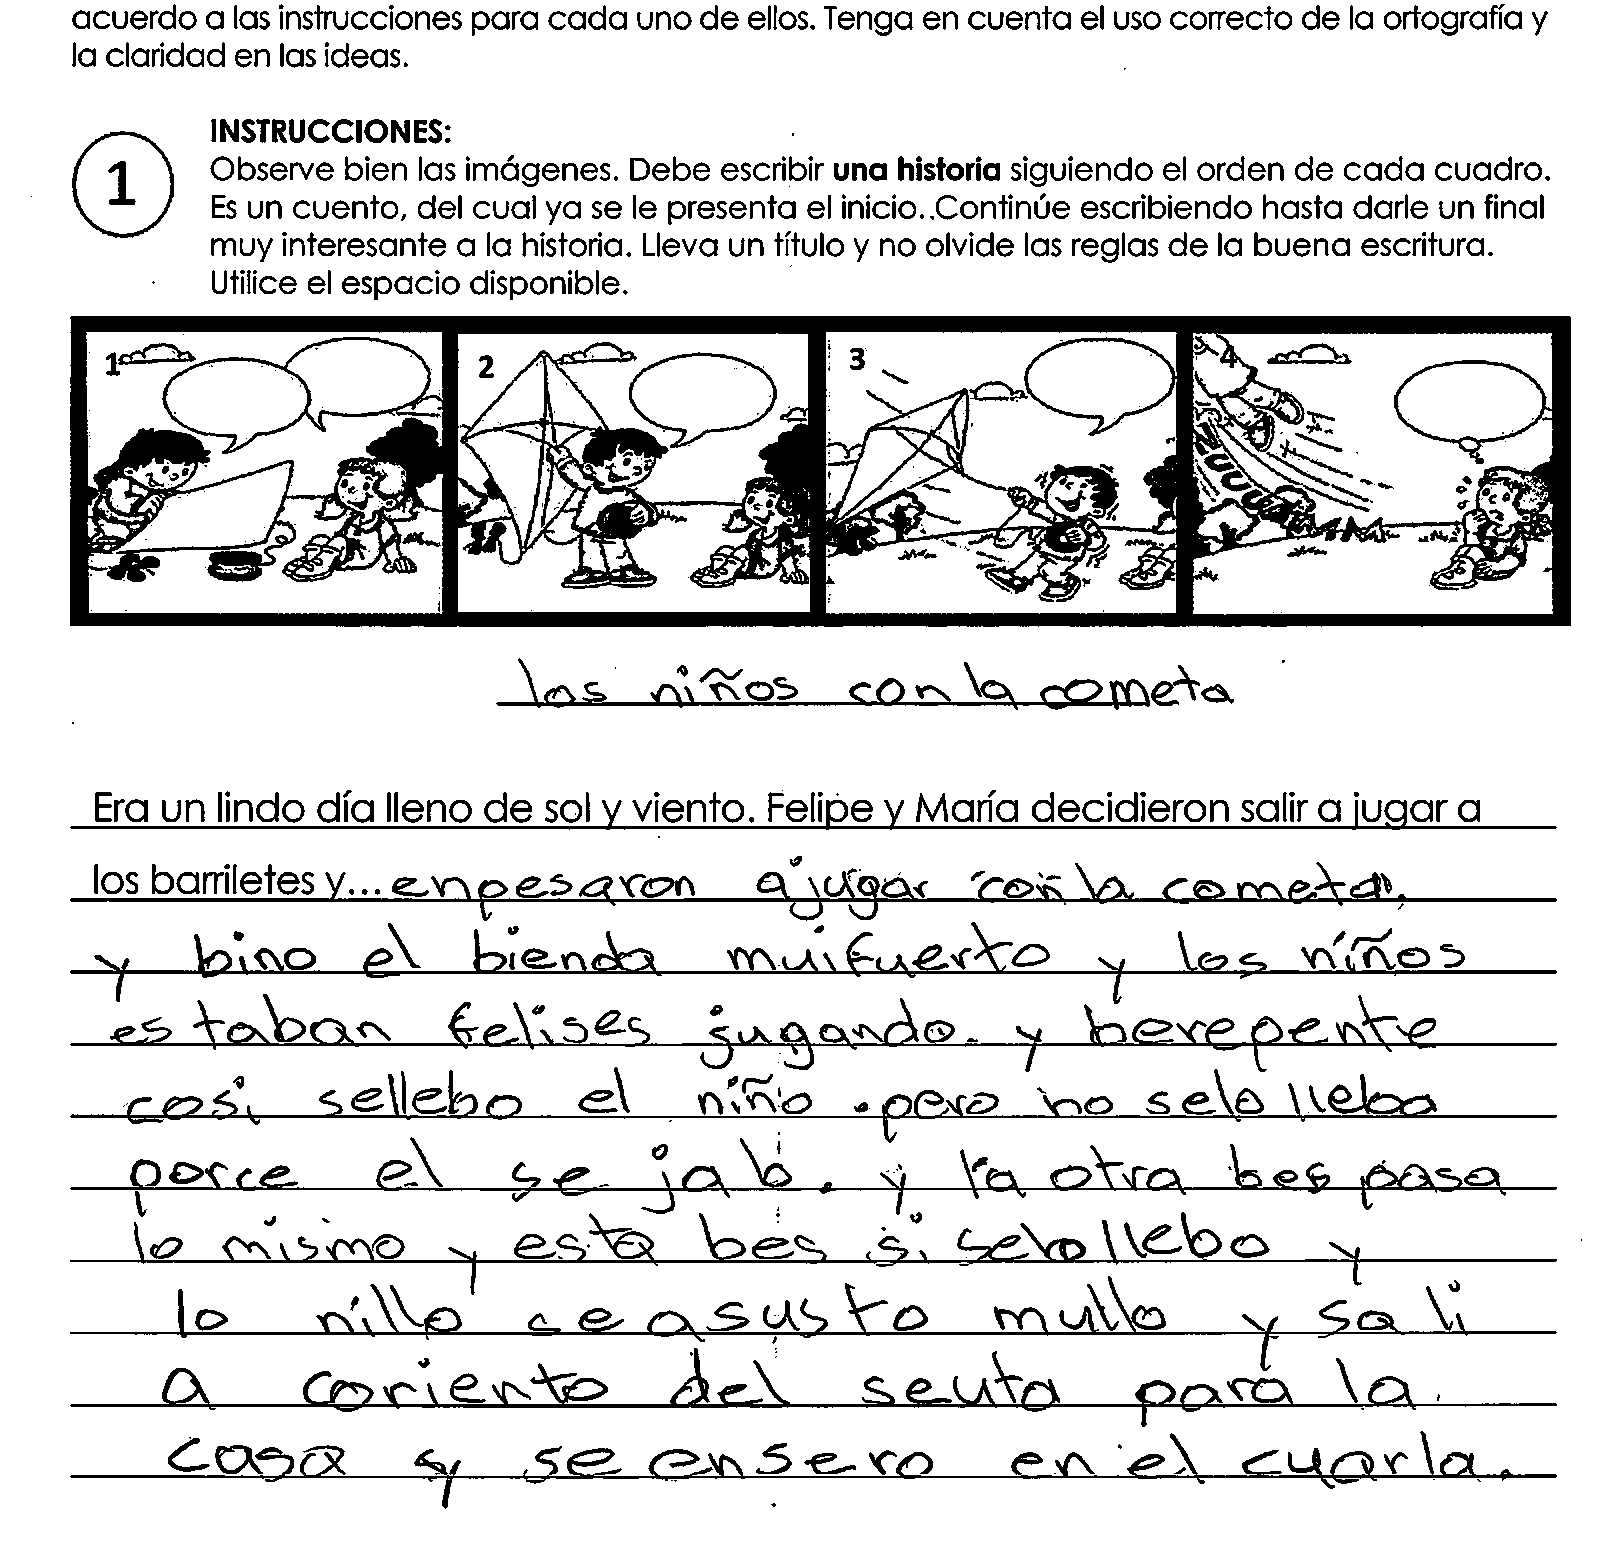 acuerdo a las instrucciones para cada uno de ellos. Tenga en cuenta el uso correcto de la ortografía y
la claridad en las ideas.
1
INSTRUCCIONES:
Observe bien las imágenes. Debe escribir una historia siguiendo el orden de cada cuadro.
Es un cuento, del cual ya se le presenta el inicio. Continúe escribiendo hasta darle un final
muy interesante a la historia. Lleva un título y no olvide las reglas de la buena escritura.
Utilice el espacio disponible.
1 2 3 4
los niños con la cometa
Era un lindo día lleno de sol y viento. Felipe y María decidieron salir a jugar a
los barriletes y... enpesaron a jugar con la cometa.
y bino el bienda mui fuerto y los niños
estaban felises jugando. y berepente
cosi sellebo el niño . pero no selo lleba
porce el se jab. y la otra bes pasa
lo mismo y esta bes si selo llebo y
lo nillo se asusto mullo y sali
a coriento del seuta para la
casa y se ensero en el cuarla.